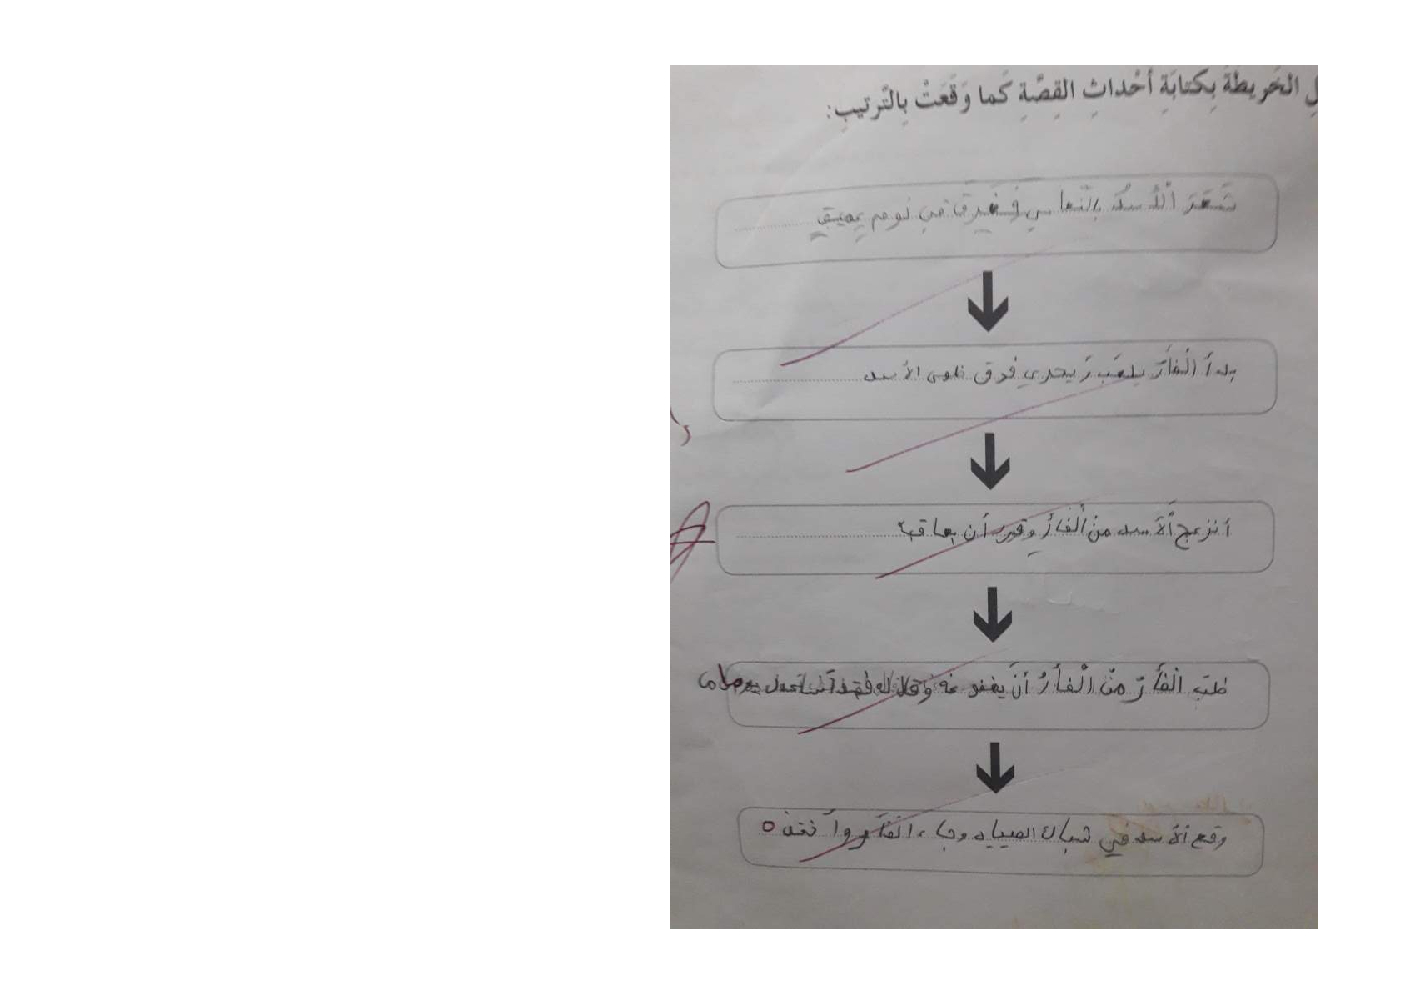 ل الخَريطَةَ بِكتابَةِ أَحْداثِ القِصَّةِ كَما وَقَعَتْ بِالتَّرتيبِ:
شَعَرَ الْأَسدُ بِالنّعاسِ فَغَرِقَ في نومٍ عميقٍ
بدأ الْفأرُ يلعَب ويجري فوق ظهر الأسد
أنزعج الْأسد منْ الْفأرُ وقرر أن يعاقبه
طلبَ الْفأرُ منْ الْفأرُ أنْ يعفو عنه وقال له
وقع الأسد في شباك الصياد وجاء الفأر وأنقذه